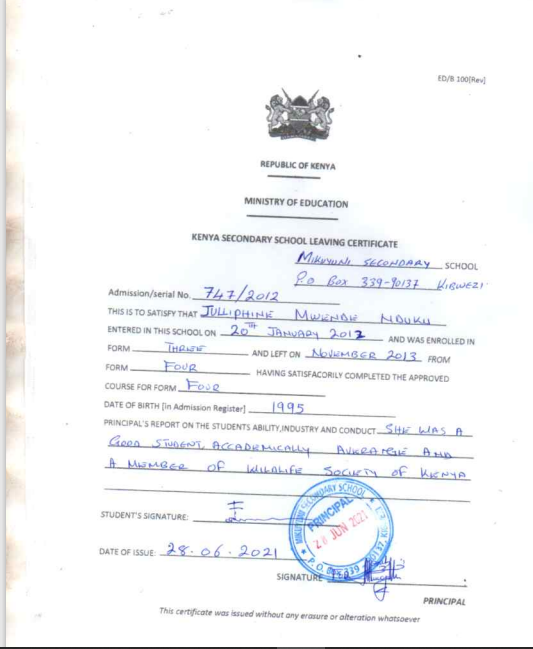 ED/B 100[Rev]
REPUBLIC OF KENYA
MINISTRY OF EDUCATION
KENYA SECONDARY SCHOOL LEAVING CERTIFICATE
MIKUYUNI SECONDARY SCHOOL
P.O BOX 339-90137 KIBWEZI
Admission/serial No. 747/2012
THIS IS TO SATISFY THAT JULLIPHINE MWENDE NDUKU
ENTERED IN THIS SCHOOL ON 20TH JANUARY 2012 AND WAS ENROLLED IN
FORM THREE AND LEFT ON NOVEMBER 2013 FROM
FORM FOUR HAVING SATISFACORILY COMPLETED THE APPROVED
COURSE FOR FORM FOUR
DATE OF BIRTH [in Admission Register] 1995
PRINCIPAL'S REPORT ON THE STUDENTS ABILITY,INDUSTRY AND CONDUCT SHE WAS A
GOOD STUDENT, ACCADEMICALLY AVERANGE AND
A MEMBER OF WILDLIFE SOCIETY OF KENYA
MIKUYUNI SECONDARY SCHOOL
PRINCIPAL
JUN 2021
P.O. BOX 339
STUDENT'S SIGNATURE:
DATE OF ISSUE: 28.06.2021
SIGNATURE
PRINCIPAL
This certificate was issued without any erasure or alteration whatsoever